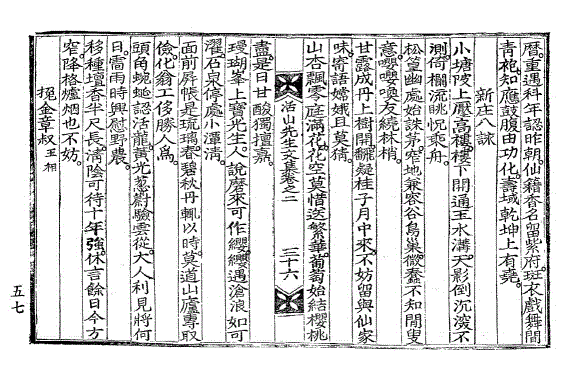 曆重遇科年認昨朝仙籍香名留紫府斑衣戱舞間
青袍知應鼓腹由功化壽域乾坤上有堯
新庄八詠
小塘陂上壓高樓樓下開通玉水溝天影倒沉深不
測倚欄流眺怳乘舟
松篁幽處始誅茅窄地兼容谷鳥巢微蠢不知閒叟
意嚶嚶喚友繞林梢
甘露成丹上樹開翻疑桂子月中來不妨留與仙家
味寄語嫦娥且莫猜
山杏飄零庭滿花花空莫惜送繁華葡萄始結櫻桃
活山先生文集卷之二
三十六
盡是日甘酸獨擅嘉
璶瑚峯上寶光生人說磨來可作纓纓遇滄浪如可
濯石泉停處小潭淸
面前屛帳是琉璃春碧秋丹輒以時莫道山廬專取
儉化翁工侈勝人爲
頭角蜿蜒認活龍黃光葱蔚驗雲從大人利見將何
日雷雨時興慰野農
移種壇杏半尺長淸陰可待十年强休言餘日今方
窄降格爐烟也不妨
挽金章叔王相
五七